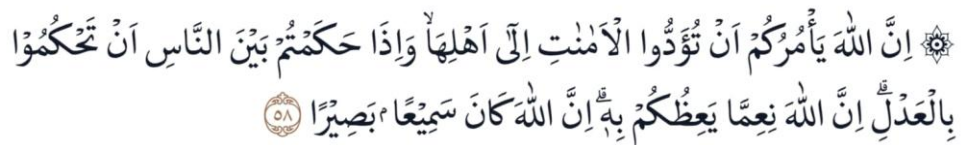 ۞ اِنَّ اللّٰهَ يَأْمُرُكُمْ اَنْ تُؤَدُّوا الْاَمٰنٰتِ اِلٰٓى اَهْلِهَاۙ وَاِذَا حَكَمْتُمْ بَيْنَ النَّاسِ اَنْ تَحْكُمُوْا
بِالْعَدْلِۗ اِنَّ اللّٰهَ نِعِمَّا يَعِظُكُمْ بِهٖۗ اِنَّ اللّٰهَ كَانَ سَمِيْعًاۢ بَصِيْرًا ٥٨